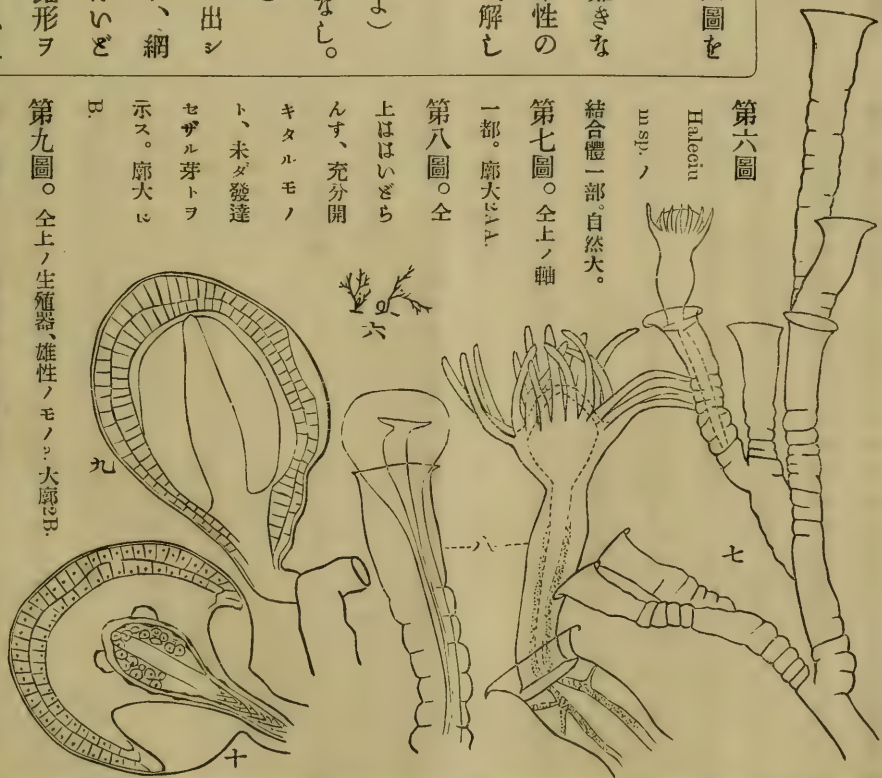 圖を
きな
性の
解し
よ）
なし。
）
出シ
、網
いど
形ヲ
第六圖
Haleciu
m sp. ノ
結合體一部。自然大。
第七圖。仝上ノ軸
一部。廓大 AA.
第八圖。仝
上ははいどら
んす、充分開
キタルモノ
ト、未ダ發達
セザル芽トヲ
示ス。廓大
B.
第九圖。仝上ノ生殖器、雄性ノモノ？大廓2B.
六
七
八
九
十